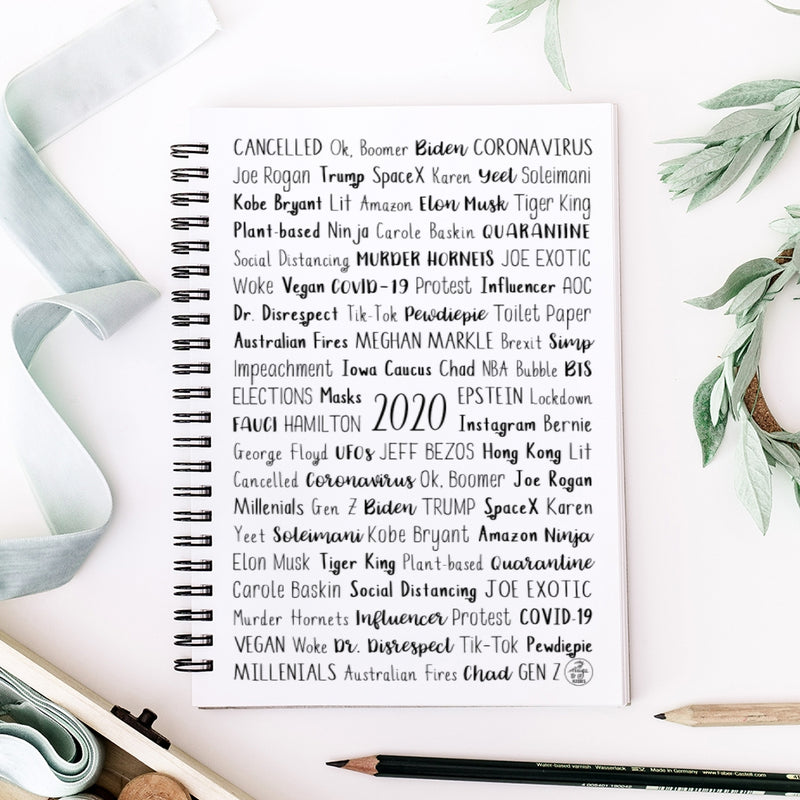 CANCELLED Ok, Boomer Biden CORONAVIRUS
Joe Rogan Trump SpaceX Karen Yeet Soleimani
Kobe Bryant Lit Amazon Elon Musk Tiger King
Plant-based Ninja Carole Baskin QUARANTINE
Social Distancing MURDER HORNETS JOE EXOTIC
Woke Vegan COVID-19 Protest Influencer AOC
Dr. Disrespect Tik-Tok Pewdiepie Toilet Paper
Australian Fires MEGHAN MARKLE Brexit Simp
Impeachment Iowa Caucus Chad NBA Bubble BTS
ELECTIONS Masks 2020 EPSTEIN Lockdown
FAUCI HAMILTON Instagram Bernie
George Floyd UFOs JEFF BEZOS Hong Kong Lit
Cancelled Coronavirus Ok, Boomer Joe Rogan
Millenials Gen Z Biden TRUMP SpaceX Karen
Yeet Soleimani Kobe Bryant Amazon Ninja
Elon Musk Tiger King Plant-based Quarantine
Carole Baskin Social Distancing JOE EXOTIC
Murder Hornets Influencer Protest COVID-19
VEGAN Woke Dr. Disrespect Tik-Tok Pewdiepie
MILLENIALS Australian Fires Chad GEN Z
Water-based varnish Wasserlack Made in Germany www.Faber-Castell.com